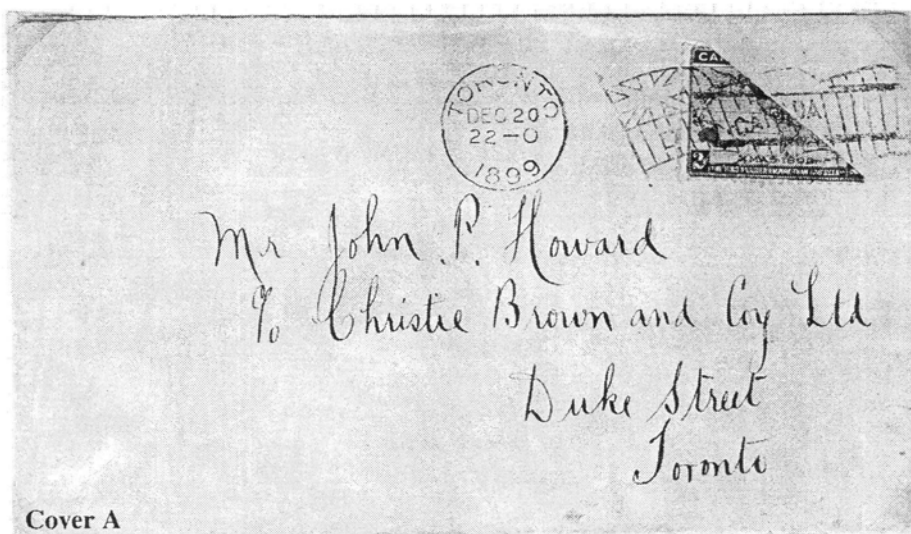 TORONTO
DEC 20
22-0
1899
CANADA
CANADA
XMAS 1898
2
Mr John P. Howard
c/o Christie Brown and Coy Ltd
Duke Street
Toronto
Cover A